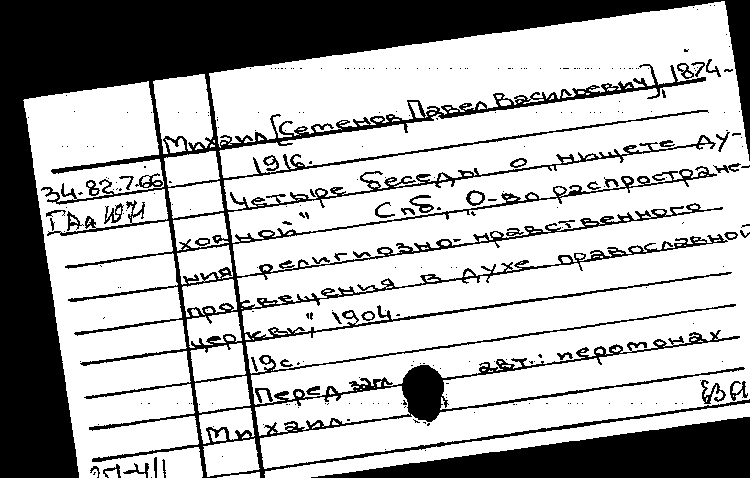 Михаил [Семенов, Павел Васильевич], 1874-
1916.
34.82.7.66.
Четыре беседы о „нищете ду-
ховной" Спб., „О-во распростране-
ния религиозно-нравственного
просвещения в духе православной
церкви", 1904.
19 с.
Перед загл. авт.: иеромонах
Михаил.